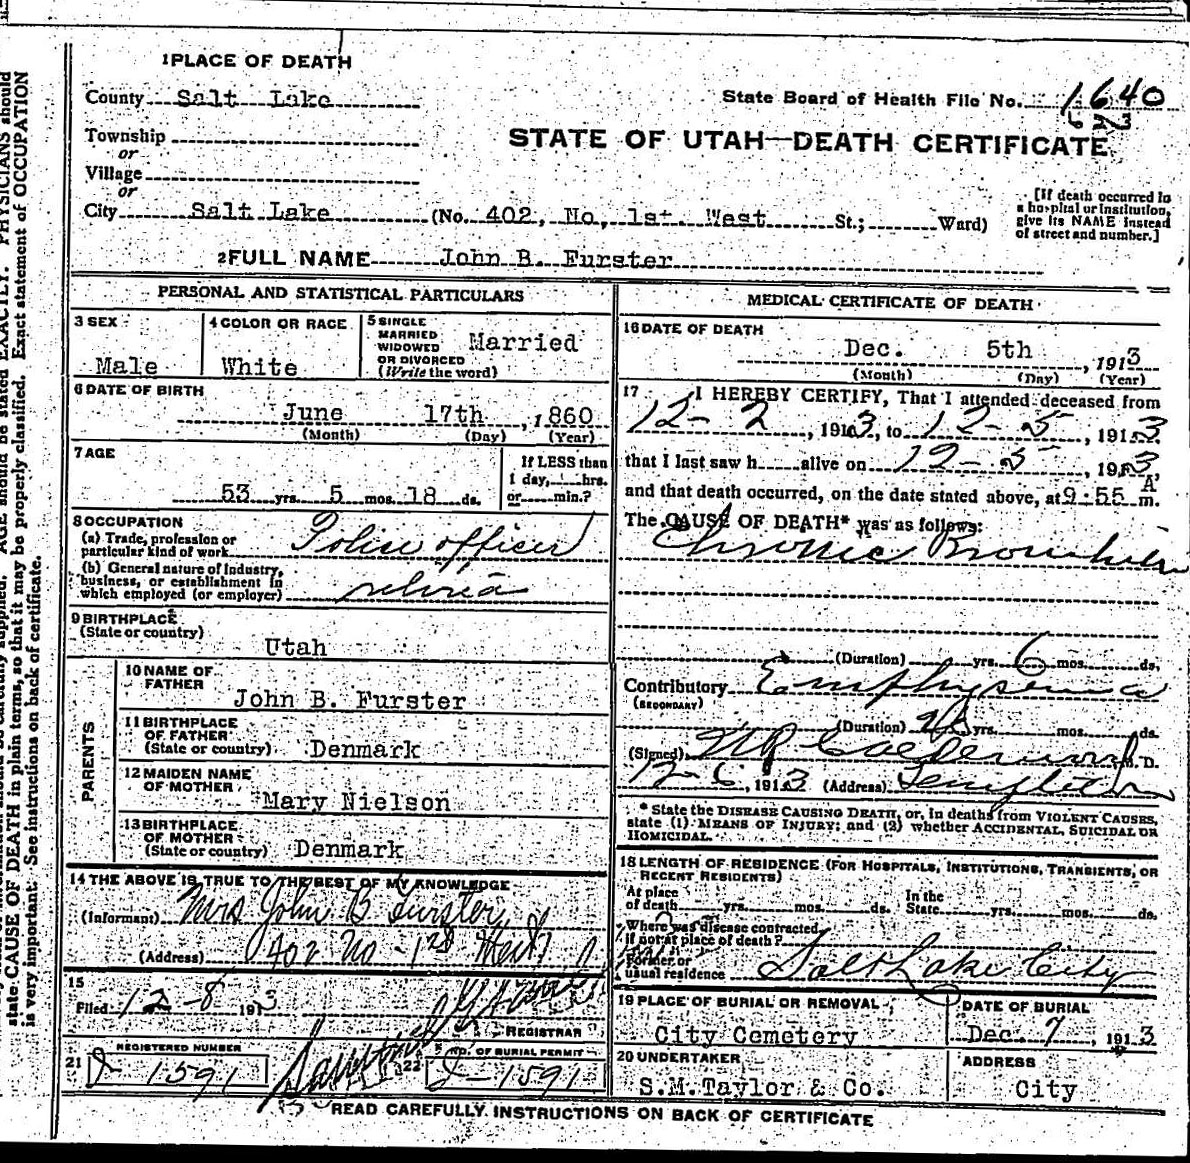 1 PLACE OF DEATH
County Salt Lake
State Board of Health File No. 1640
STATE OF UTAH—DEATH CERTIFICATE
Township
or
Village
or
City Salt Lake (No. 402, No, 1st. West St.; Ward)
[If death occurred in a hospital or institution, give its NAME instead of street and number.]
2 FULL NAME John B. Furster
PERSONAL AND STATISTICAL PARTICULARS
3 SEX
Male
4 COLOR OR RACE
White
5 SINGLE
MARRIED
WIDOWED
OR DIVORCED
(Write the word)
Married
6 DATE OF BIRTH
June 17th , 1860
(Month) (Day) (Year)
7 AGE
53 yrs. 5 mos. 18 ds.
If LESS than
1 day, hrs.
or min.?
8 OCCUPATION
(a) Trade, profession or
particular kind of work Police officer
(b) General nature of industry,
business, or establishment in
which employed (or employer)
9 BIRTHPLACE
(State or country)
Utah
PARENTS
10 NAME OF
FATHER
John B. Furster
11 BIRTHPLACE
OF FATHER
(State or country) Denmark
12 MAIDEN NAME
OF MOTHER
Mary Nielson
13 BIRTHPLACE
OF MOTHER
(State or country) Denmark
14 THE ABOVE IS TRUE TO THE BEST OF MY KNOWLEDGE
(Informant) Mrs John B Furster
(Address) 402 No - 1st West
15
Filed 12-8 1913
REGISTRAR
21 REGISTERED NUMBER
1591
22 NO. OF BURIAL PERMIT
1591
MEDICAL CERTIFICATE OF DEATH
16 DATE OF DEATH
Dec. 5th , 1913
(Month) (Day) (Year)
17 I HEREBY CERTIFY, That I attended deceased from
12-2, 1913, to 12-5, 1913
that I last saw h alive on 12-5, 1913,
and that death occurred, on the date stated above, at 9:55 A m.
The CAUSE OF DEATH* was as follows:
Chronic Bronchitis
(Duration) yrs. 6 mos. ds.
Contributory Emphysema
(SECONDARY)
(Duration) yrs. mos. ds.
(Signed) M. D.
12-6, 1913 (Address) Templeton
* State the DISEASE CAUSING DEATH, or, in deaths from VIOLENT CAUSES,
state (1) MEANS OF INJURY; and (2) whether ACCIDENTAL, SUICIDAL OR
HOMICIDAL.
18 LENGTH OF RESIDENCE (FOR HOSPITALS, INSTITUTIONS, TRANSIENTS, OR
RECENT RESIDENTS)
At place
of death yrs. mos. ds. In the
State yrs. mos. ds.
Where was disease contracted,
if not at place of death?
Former or
usual residence Salt Lake City
19 PLACE OF BURIAL OR REMOVAL
City Cemetery
DATE OF BURIAL
Dec. 7, 1913
20 UNDERTAKER
S.M. Taylor & Co.
ADDRESS
City
READ CAREFULLY INSTRUCTIONS ON BACK OF CERTIFICATE
AGE should be stated EXACTLY. PHYSICIANS should
state CAUSE OF DEATH in plain terms, so that it may be properly classified. Exact statement of OCCUPATION
is very important. See instructions on back of certificate.